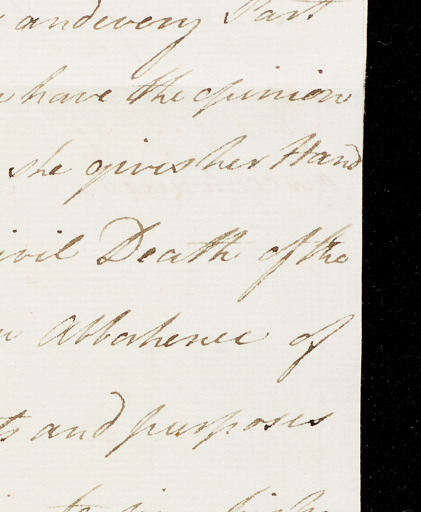 and every Part
have the opinion
she gives her Hand
ivil Death of the
Abborhence of
ts and purposes